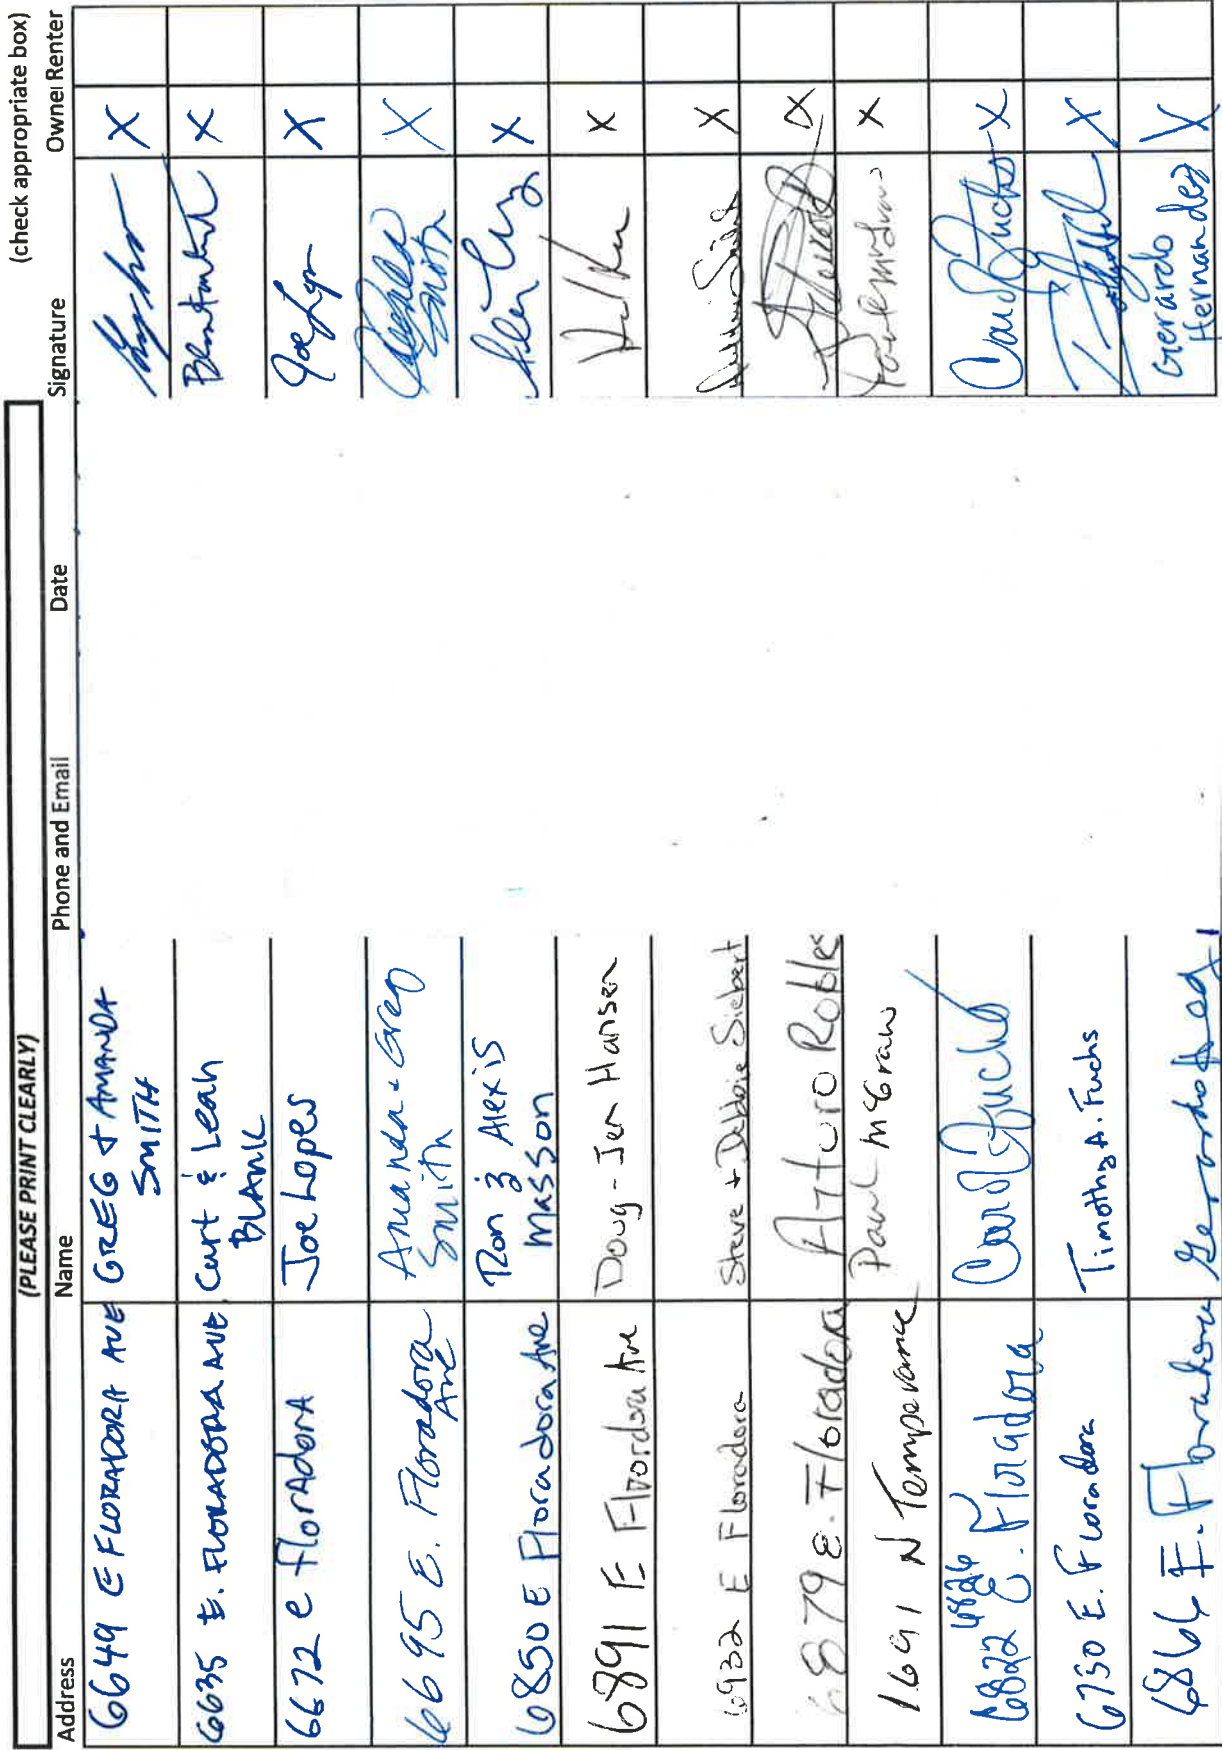 (PLEASE PRINT CLEARLY)
(check appropriate box)
Address Name Phone and Email Date Signature Owner Renter
6649 E FLORADORA AVE GREG & AMANDA X
SMITH
6635 E. FLORADORA AVE Curt & Leah X
BLANK
6672 e FlorAdorA Joe Lopes X
6695 E. Floradora Amanda & Greg Amanda X
Ave Smith Smith
6850 E Floradora Ave Ron & Alexis X
Masson
6891 E Flordora Ave Doug - Jen Hansen X
6932 E Floradora Steve + Debbie Siebert X
6879 E. Floradora Arturo Robles X
1691 N Temperance Paul McGraw X
6826
6822 E. Floradora Carol Fuchs Carol Fuchs X
6750 E. Floradora Timothy A. Fuchs X
6866 E. Floradora Gerardo X
Hernandez